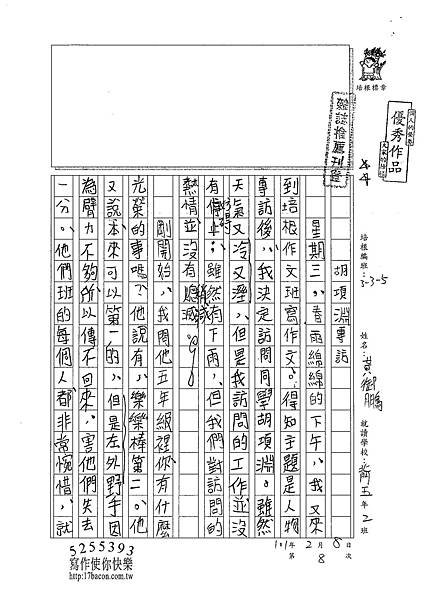 培根標章
個人的優秀
大家的格培
優秀作品
雜誌推薦刊登
培根編班：3-3-5
姓名：黃
就讀學校：
五年2班
101年2月8日
第8次
胡項淵專訪
星期三，春雨綿綿的下午，我又來
到培根作文班寫作文。得知主題是人物
專訪後，我決定訪問同學胡項淵。雖然
天氣又冷又溼，但是我訪問的工作並沒
有停止；雖然有下雨，但我們對訪問的
熱情並沒有減。
剛開始，我問他五年級裡你有什麼
光榮的事嗎？他說有，樂樂棒第二。他
又說本來可以第一的，但是左外野手因
為臂力不夠所以傳不回來，害他們失去
一分。他們班的每個人都非常惋惜，就
5255393
寫作使你快樂
http://17bacon.com.tw